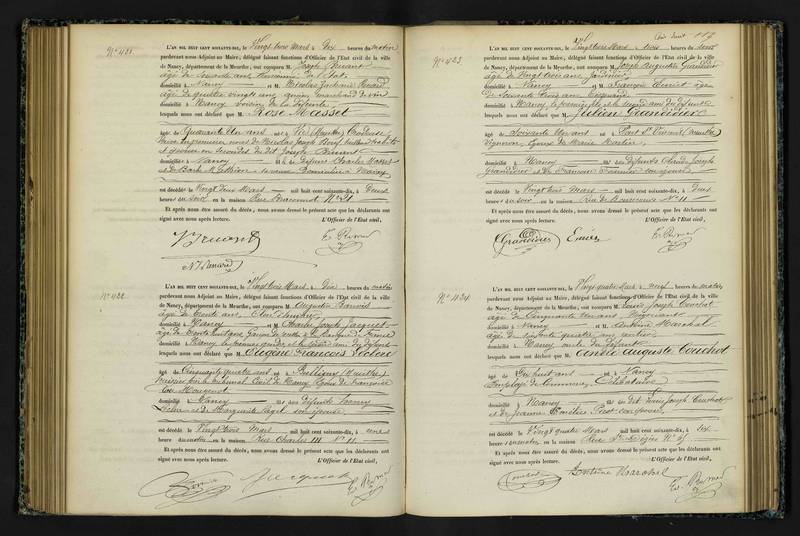 N° 421.
L'AN MIL HUIT CENT SOIXANTE-DIX, le Vingt trois Mars à Dix heures du matin
pardevant nous Adjoint au Maire, délégué faisant fonctions d'Officier de l'Etat civil de la ville
de Nancy, département de la Meurthe, ont comparu M. Joseph
âgé de Soixante ans
domicilié à Nancy et M. Nicolas
âgé de quatre vingts ans, ancien marchand de vin
domicilié à Nancy voisin de la Défunte,
lesquels nous ont déclaré que M. Rose Masset
âgée de Quarante Un ans né à Vic (Meurthe) Brodeuse
Veuve en premières noces de Nicolas Joseph
et épouse en secondes du dit Joseph
domicilié à Nancy de défunt Charles Masset
et de Barbe sa veuve Domiciliée à Nancy
est décédée le Vingt Deux Mars mil huit cent soixante-dix, à Deux
heures du soir en la maison Rue Braconnot N° 21
Et après nous être assuré du décès, nous avons dressé le présent acte que les déclarants ont
signé avec nous après lecture. L'Officier de l'Etat civil,
N° 422
L'AN MIL HUIT CENT SOIXANTE-DIX, le Vingt trois Mars à Dix heures du matin
pardevant nous Adjoint au Maire, délégué faisant fonctions d'Officier de l'Etat civil de la ville
de Nancy, département de la Meurthe, ont comparu M. Augustin
âgé de Trente ans,
domicilié à Nancy et M. Charles Joseph Jacquot
âgé de Trente
domicilié à Nancy le premier gendre et le second ami du Défunt
lesquels nous ont déclaré que M. Eugène François Leclerc
âgé de Cinquante quatre ans né à Bulligny (Meurthe)
Huissier près le tribunal Civil de Nancy Epoux de Françoise
domicilié à Nancy de ses défunts
Leclerc et de Marguerite son épouse
est décédé le Vingt trois Mars mil huit cent soixante-dix, à une
heure du matin en la maison Rue Charles III N° 11
Et après nous être assuré du décès, nous avons dressé le présent acte que les déclarants ont
signé avec nous après lecture. L'Officier de l'Etat civil,
Jacquot
117
N° 423
L'AN MIL HUIT CENT SOIXANTE-DIX, le Vingt trois Mars à trois heures du soir
pardevant nous Adjoint au Maire, délégué faisant fonctions d'Officier de l'Etat civil de la ville
de Nancy, département de la Meurthe, ont comparu M. Joseph Auguste Grandidier
âgé de Vingt trois ans, jardinier
domicilié à Nancy et M. François
âgé de Soixante trois ans
domicilié à Nancy, le premier fils et le second ami du Défunt
lesquels nous ont déclaré que M. Julien Grandidier
âgé de Soixante Un ans né à Pont St Vincent (Meurthe)
Vigneron, Epoux de Marie
domicilié à Nancy de ses défunts Claude Joseph
Grandidier et de Françoise son épouse
est décédé le Vingt trois Mars mil huit cent soixante-dix, à Deux
heures du soir en la maison Rue de N° 11
Et après nous être assuré du décès, nous avons dressé le présent acte que les déclarants ont
signé avec nous après lecture. L'Officier de l'Etat civil,
Grandidier
N° 424
L'AN MIL HUIT CENT SOIXANTE-DIX, le Vingt quatre Mars à neuf heures du matin
pardevant nous Adjoint au Maire, délégué faisant fonctions d'Officier de l'Etat civil de la ville
de Nancy, département de la Meurthe, ont comparu M. Louis Joseph Couchot
âgé de Cinquante un ans, Négociant
domicilié à Nancy et M. Antoine Marchal
âgé de soixante quatre ans, rentier
domicilié à Nancy oncle du Défunt
lesquels nous ont déclaré que M. André Auguste Couchot
âgé de Dix huit ans né à Nancy
Employé de Commerce, Célibataire
domicilié à Nancy fils de dit Louis Joseph Couchot
et de Jeanne son épouse,
est décédé le Vingt quatre Mars mil huit cent soixante-dix, à six
heures du matin en la maison Rue St
Et après nous être assuré du décès, nous avons dressé le présent acte que les déclarants ont
signé avec nous après lecture. L'Officier de l'Etat civil,
Couchot Antoine Marchal